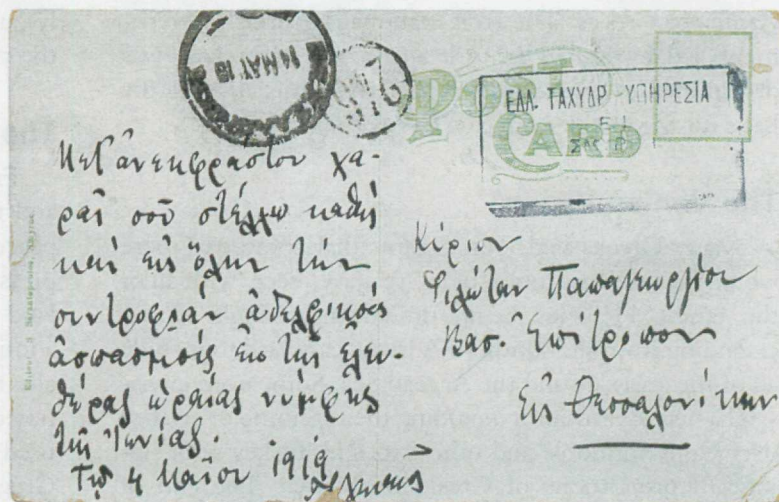 14 MAY 19
POST
CARD
ΕΛΛ. ΤΑΧΥΔΡ. ΥΠΗΡΕΣΙΑ
Μετ' ἀνεκφράστου χα-
ρᾶς σοῦ στέλλω καθὼς
καὶ εἰς ὅλην τὴν
συντροφιὰν ἀδελφικοὺς
ἀσπασμοὺς ἐκ τῆς ἐλευ-
θέρας ὡραίας νύμφης
τῆς Ἰωνίας.
Τῇ 4 Μαΐου 1919
Κύριον
Φιλώταν Παπαγεωργίου
Βασ. Ἐπίτροπον
Εἰς Θεσσαλονίκην